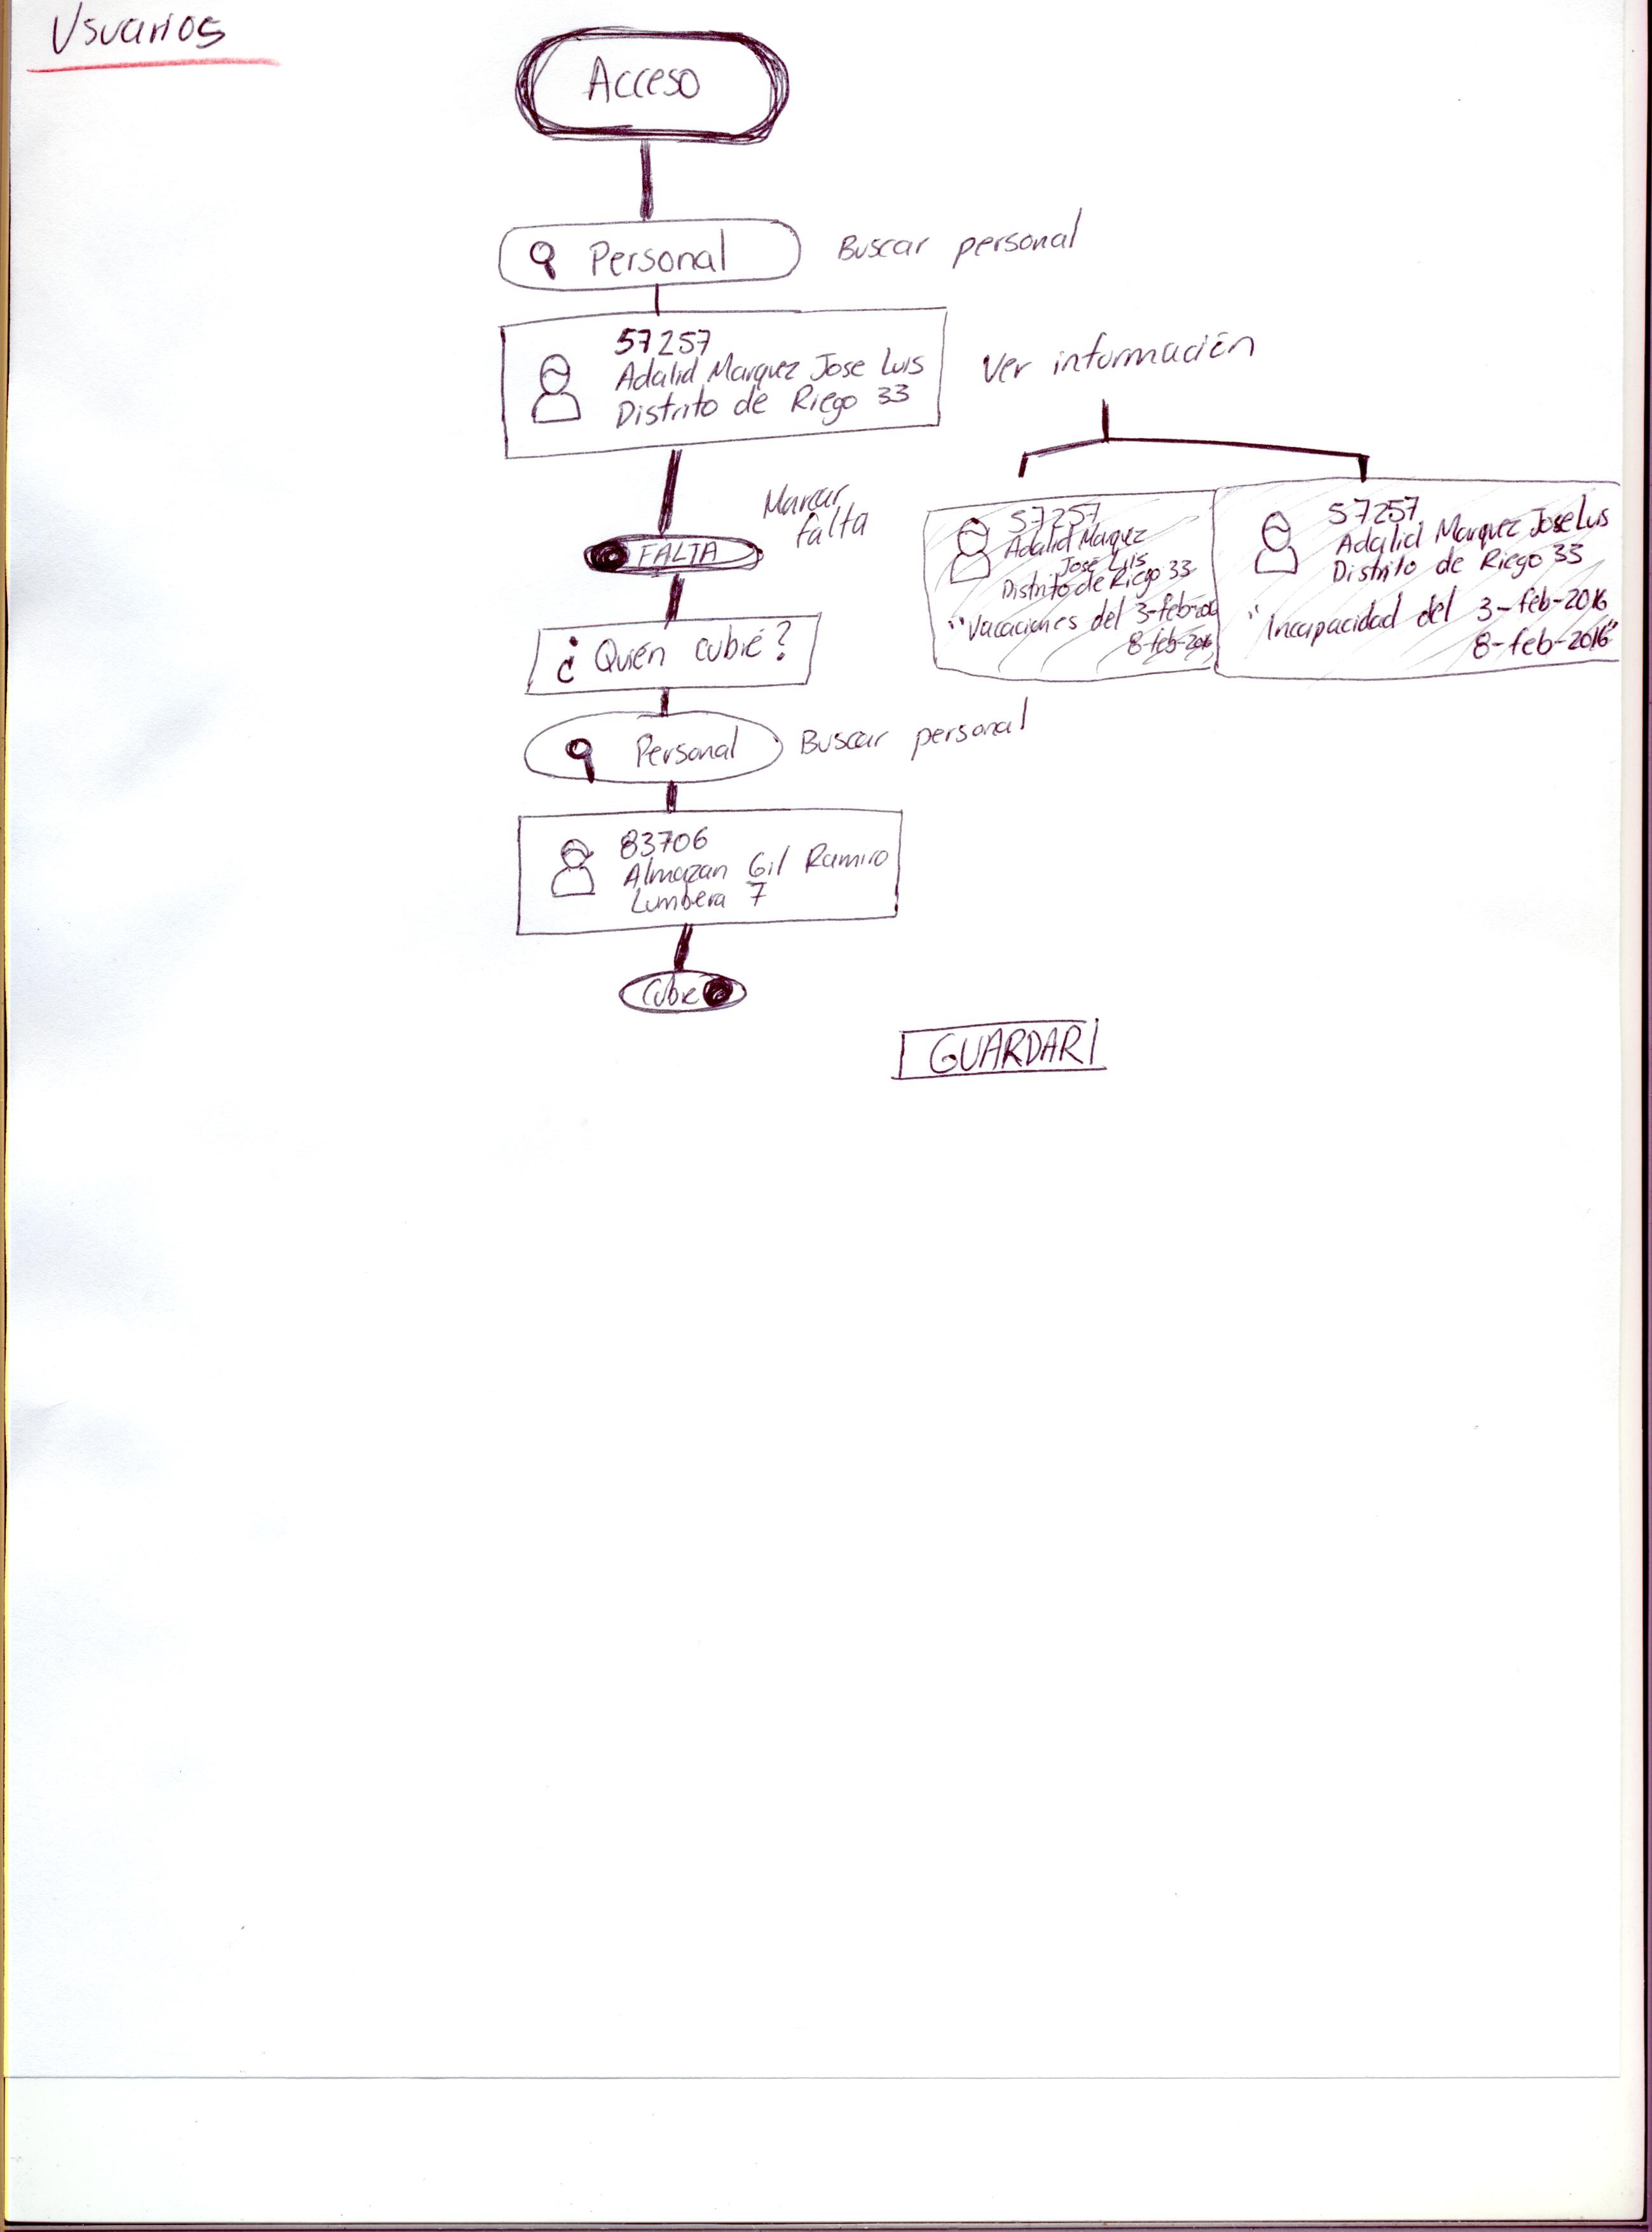 Usuarios
Acceso
Personal
Buscar personal
57257
Adalid Marquez Jose Luis
Distrito de Riego 33
Ver información
Marcar
falta
FALTA
57257
Adalid Marquez
José Luis
Distrito de Riego 33
"Vacaciones del 3-feb-2016
8-feb-2016
57257
Adalid Marquez Jose Luis
Distrito de Riego 33
"Incapacidad del 3-feb-2016
8-feb-2016"
¿Quién cubre?
Personal
Buscar personal
83706
Almazan Gil Ramiro
Lumbera 7
Cubre
GUARDAR